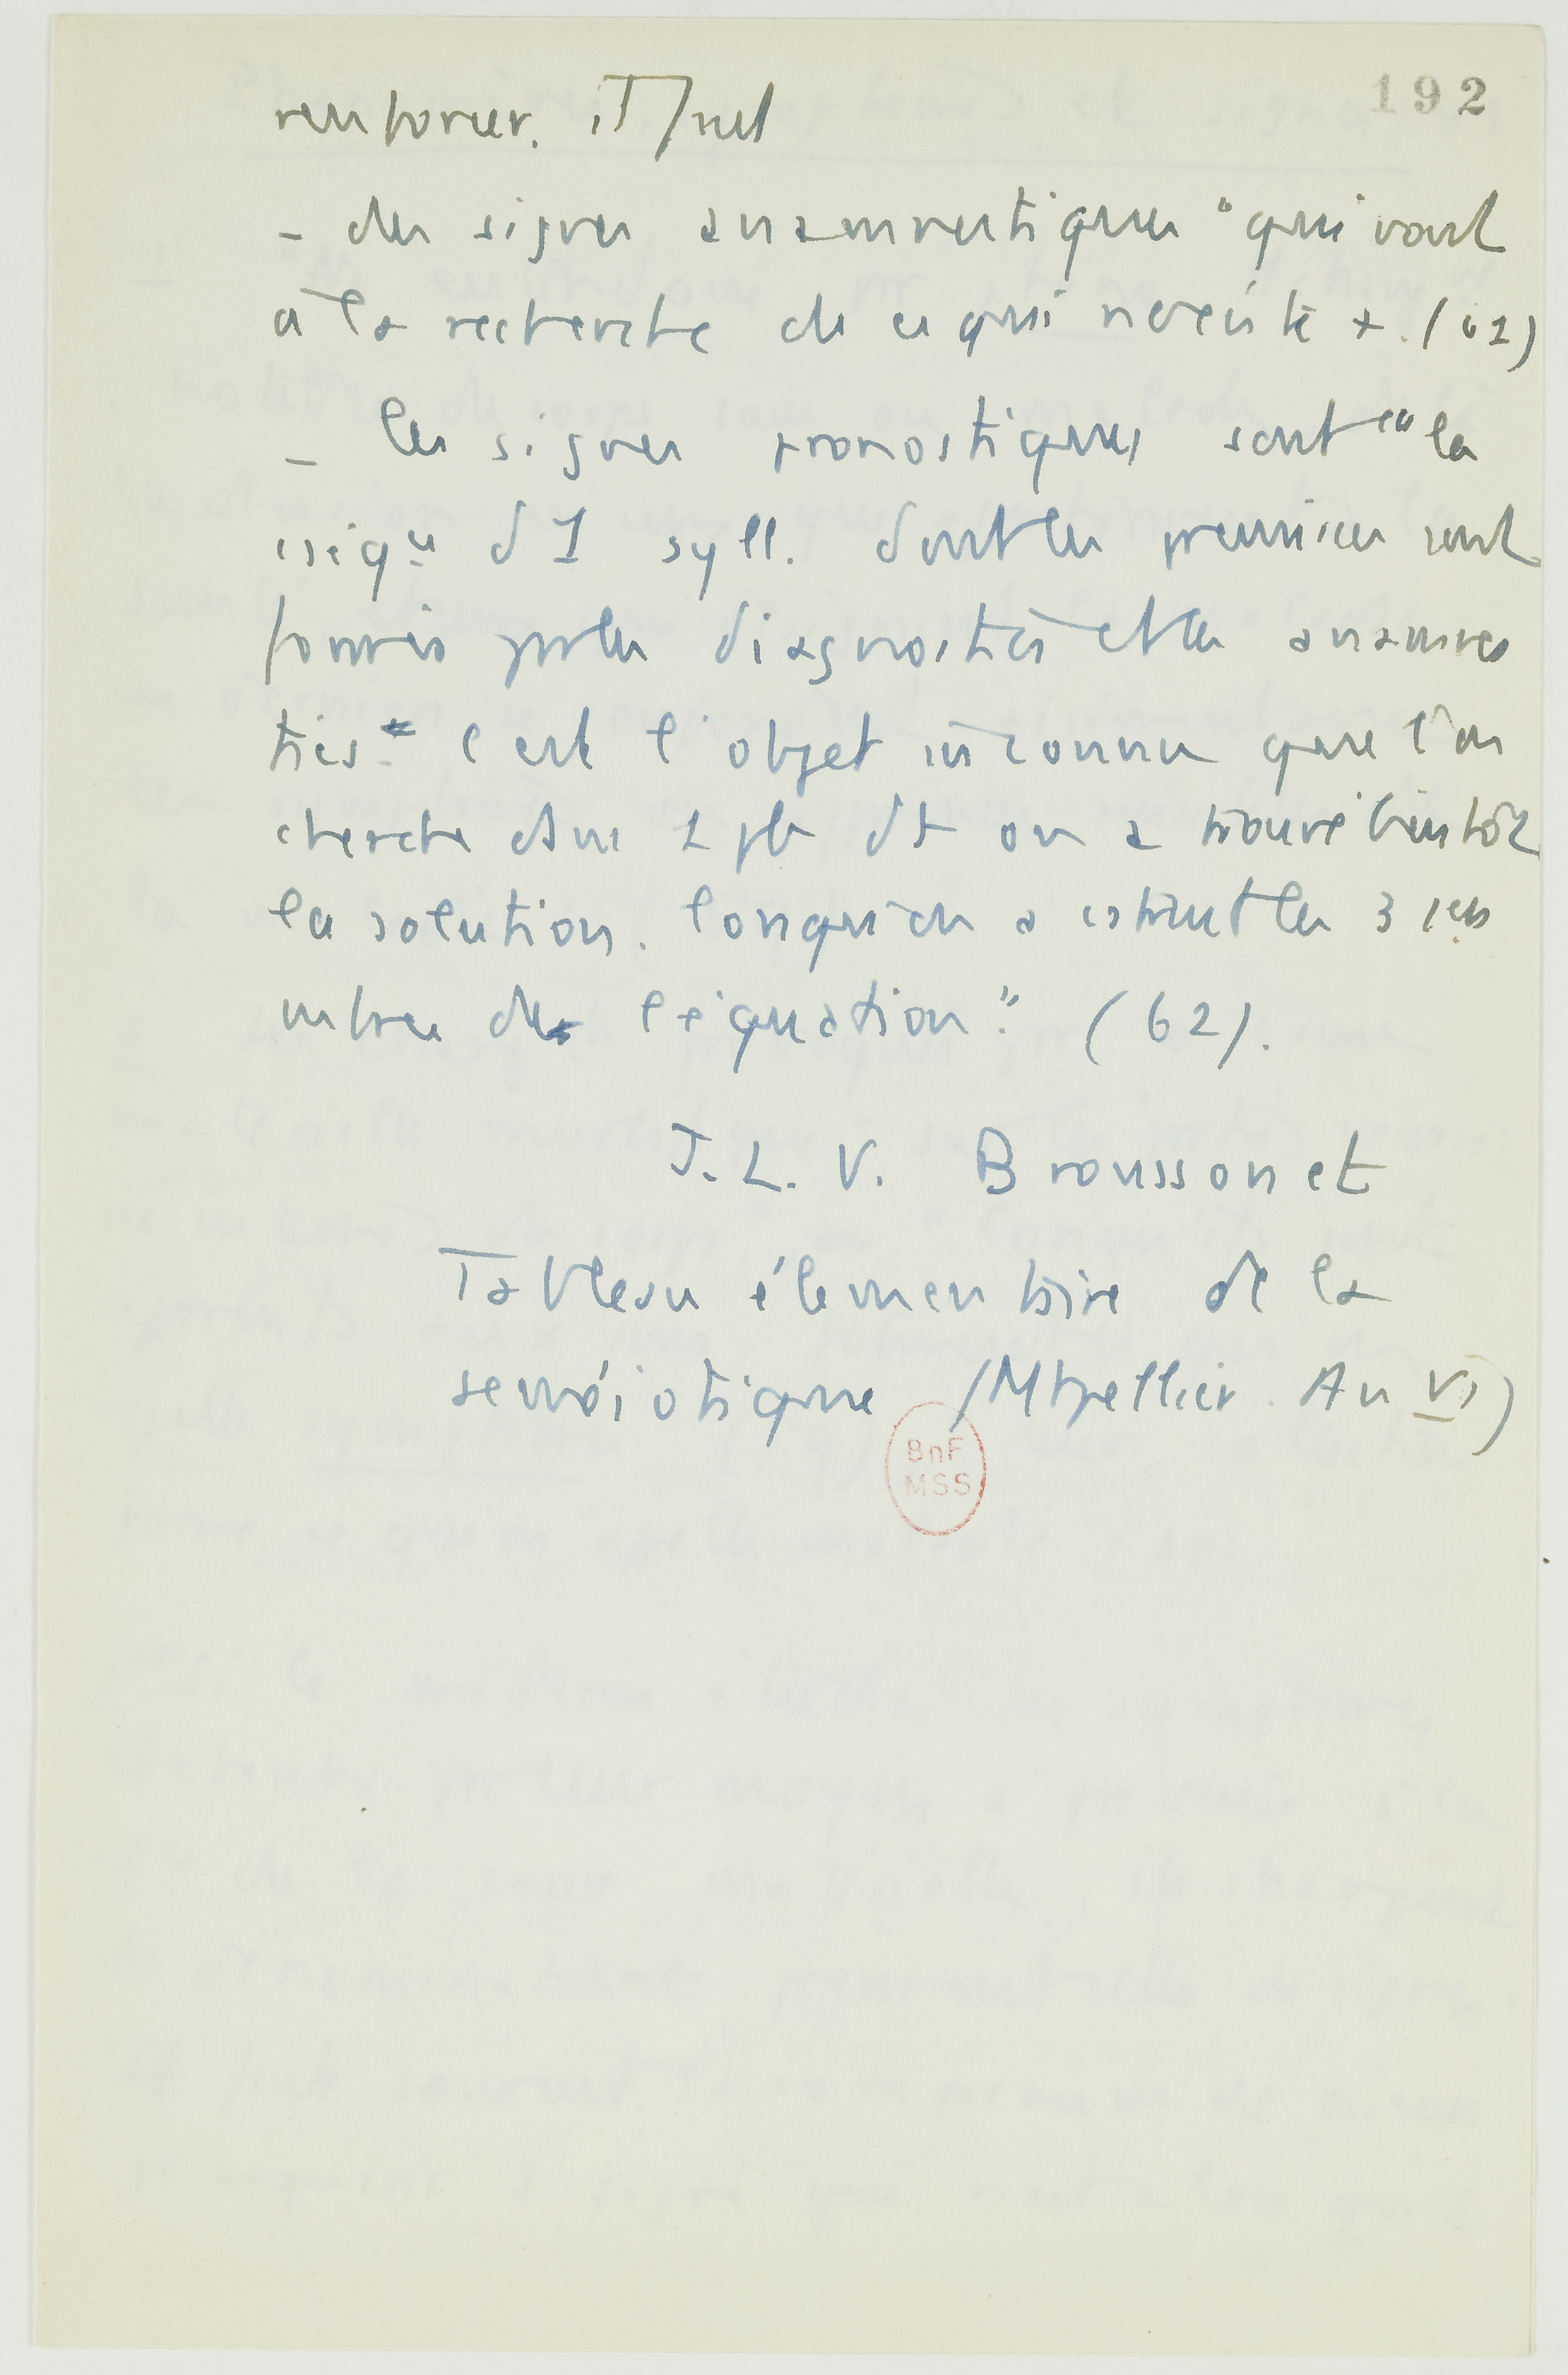 192
renforcer. Il
- des signes anamnestiques "qui vont
à la recherche de ce qui n'existe +. (61)
- les signes pronostiques sont "la
cséqu d 1 syll. dont les premisses sont
fournies par les diagnostics et les anamnes
tics. C'est l'objet inconnu que l'on
cherche dans 1 pb dt on a trouvé bientôt
la solution. lorsqu'on a les 3
mbres de l'équation." (62).
J. L. V. Broussonet
Tableau élémentaire de la
seméiotique (Mtpellier. An VI)
BnF
MSS